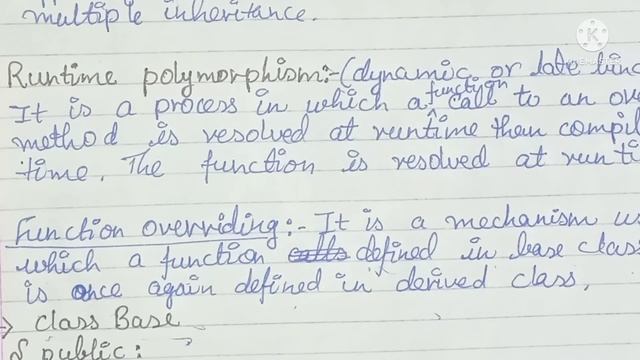 multiple inheritance.
Runtime polymorphism:- (dynamic or late binc
It is a process in which a function call to an ove
method is resolved at runtime than compil
time. The function is resolved at runti
Function overriding:- It is a mechanism us
which a function calls defined in base class
is once again defined in derived class,
→ class Base
{ public: